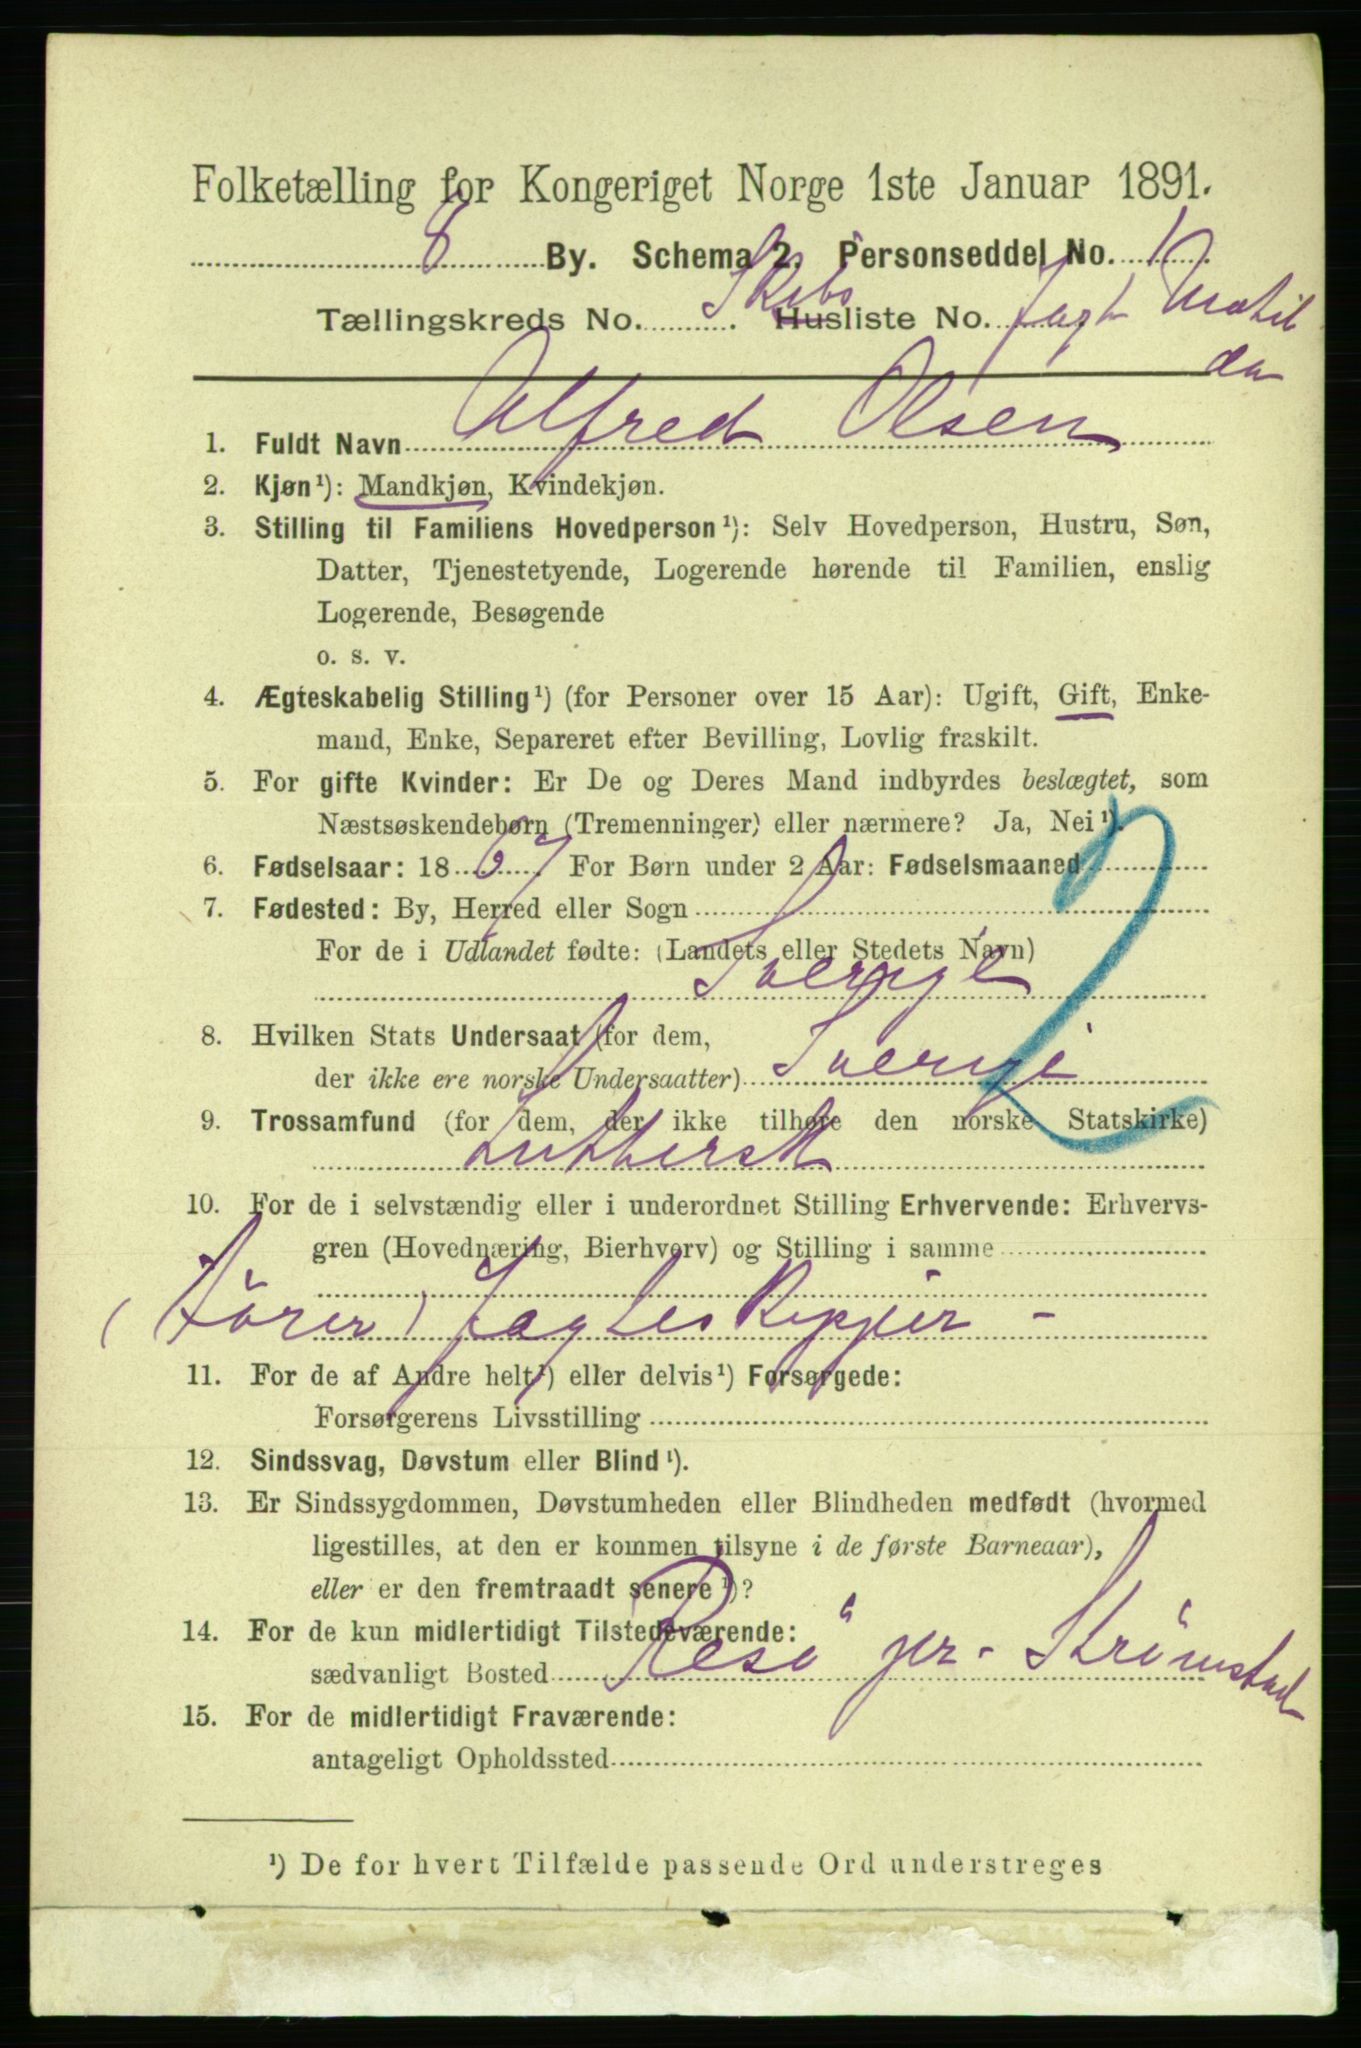 Folketælling for Kongeriget Norge 1ste Januar 1891.
8 By. Schema 2. Personseddel No. 1
Tællingskreds No. Skibs Husliste No. Jagt Matil
da
1. Fuldt Navn Alfred Olsen
2. Kjøn¹): Mandkjøn, Kvindekjøn.
3. Stilling til Familiens Hovedperson¹): Selv Hovedperson, Hustru, Søn,
Datter, Tjenestetyende, Logerende hørende til Familien, enslig
Logerende, Besøgende
o. s. v.
4. Ægteskabelig Stilling¹) (for Personer over 15 Aar): Ugift, Gift, Enke-
mand, Enke, Separeret efter Bevilling, Lovlig fraskilt.
5. For gifte Kvinder: Er De og Deres Mand indbyrdes beslægtet, som
Næstsøskendebørn (Tremenninger) eller nærmere? Ja, Nei¹).
6. Fødselsaar: 1867 For Børn under 2 Aar: Fødselsmaaned
7. Fødested: By, Herred eller Sogn
For de i Udlandet fødte: (Landets eller Stedets Navn)
Sverige
8. Hvilken Stats Undersaat (for dem,
der ikke ere norske Undersaatter) Sverige
9. Trossamfund (for dem, der ikke tilhøre den norske Statskirke)
Luthersk
10. For de i selvstændig eller i underordnet Stilling Erhvervende: Erhvervs-
gren (Hovednæring, Bierhverv) og Stilling i samme
(Förer) Jagteskipper -
11. For de af Andre helt¹) eller delvis¹) Forsørgede:
Forsørgerens Livsstilling
12. Sindssvag, Døvstum eller Blind¹).
13. Er Sindssygdommen, Døvstumheden eller Blindheden medfødt (hvormed
ligestilles, at den er kommen tilsyne i de første Barneaar),
eller er den fremtraadt senere¹)?
14. For de kun midlertidigt Tilstedeværende:
sædvanligt Bosted Resö pr - Strömstad
15. For de midlertidigt Fraværende:
antageligt Opholdssted
¹) De for hvert Tilfælde passende Ord understreges
2